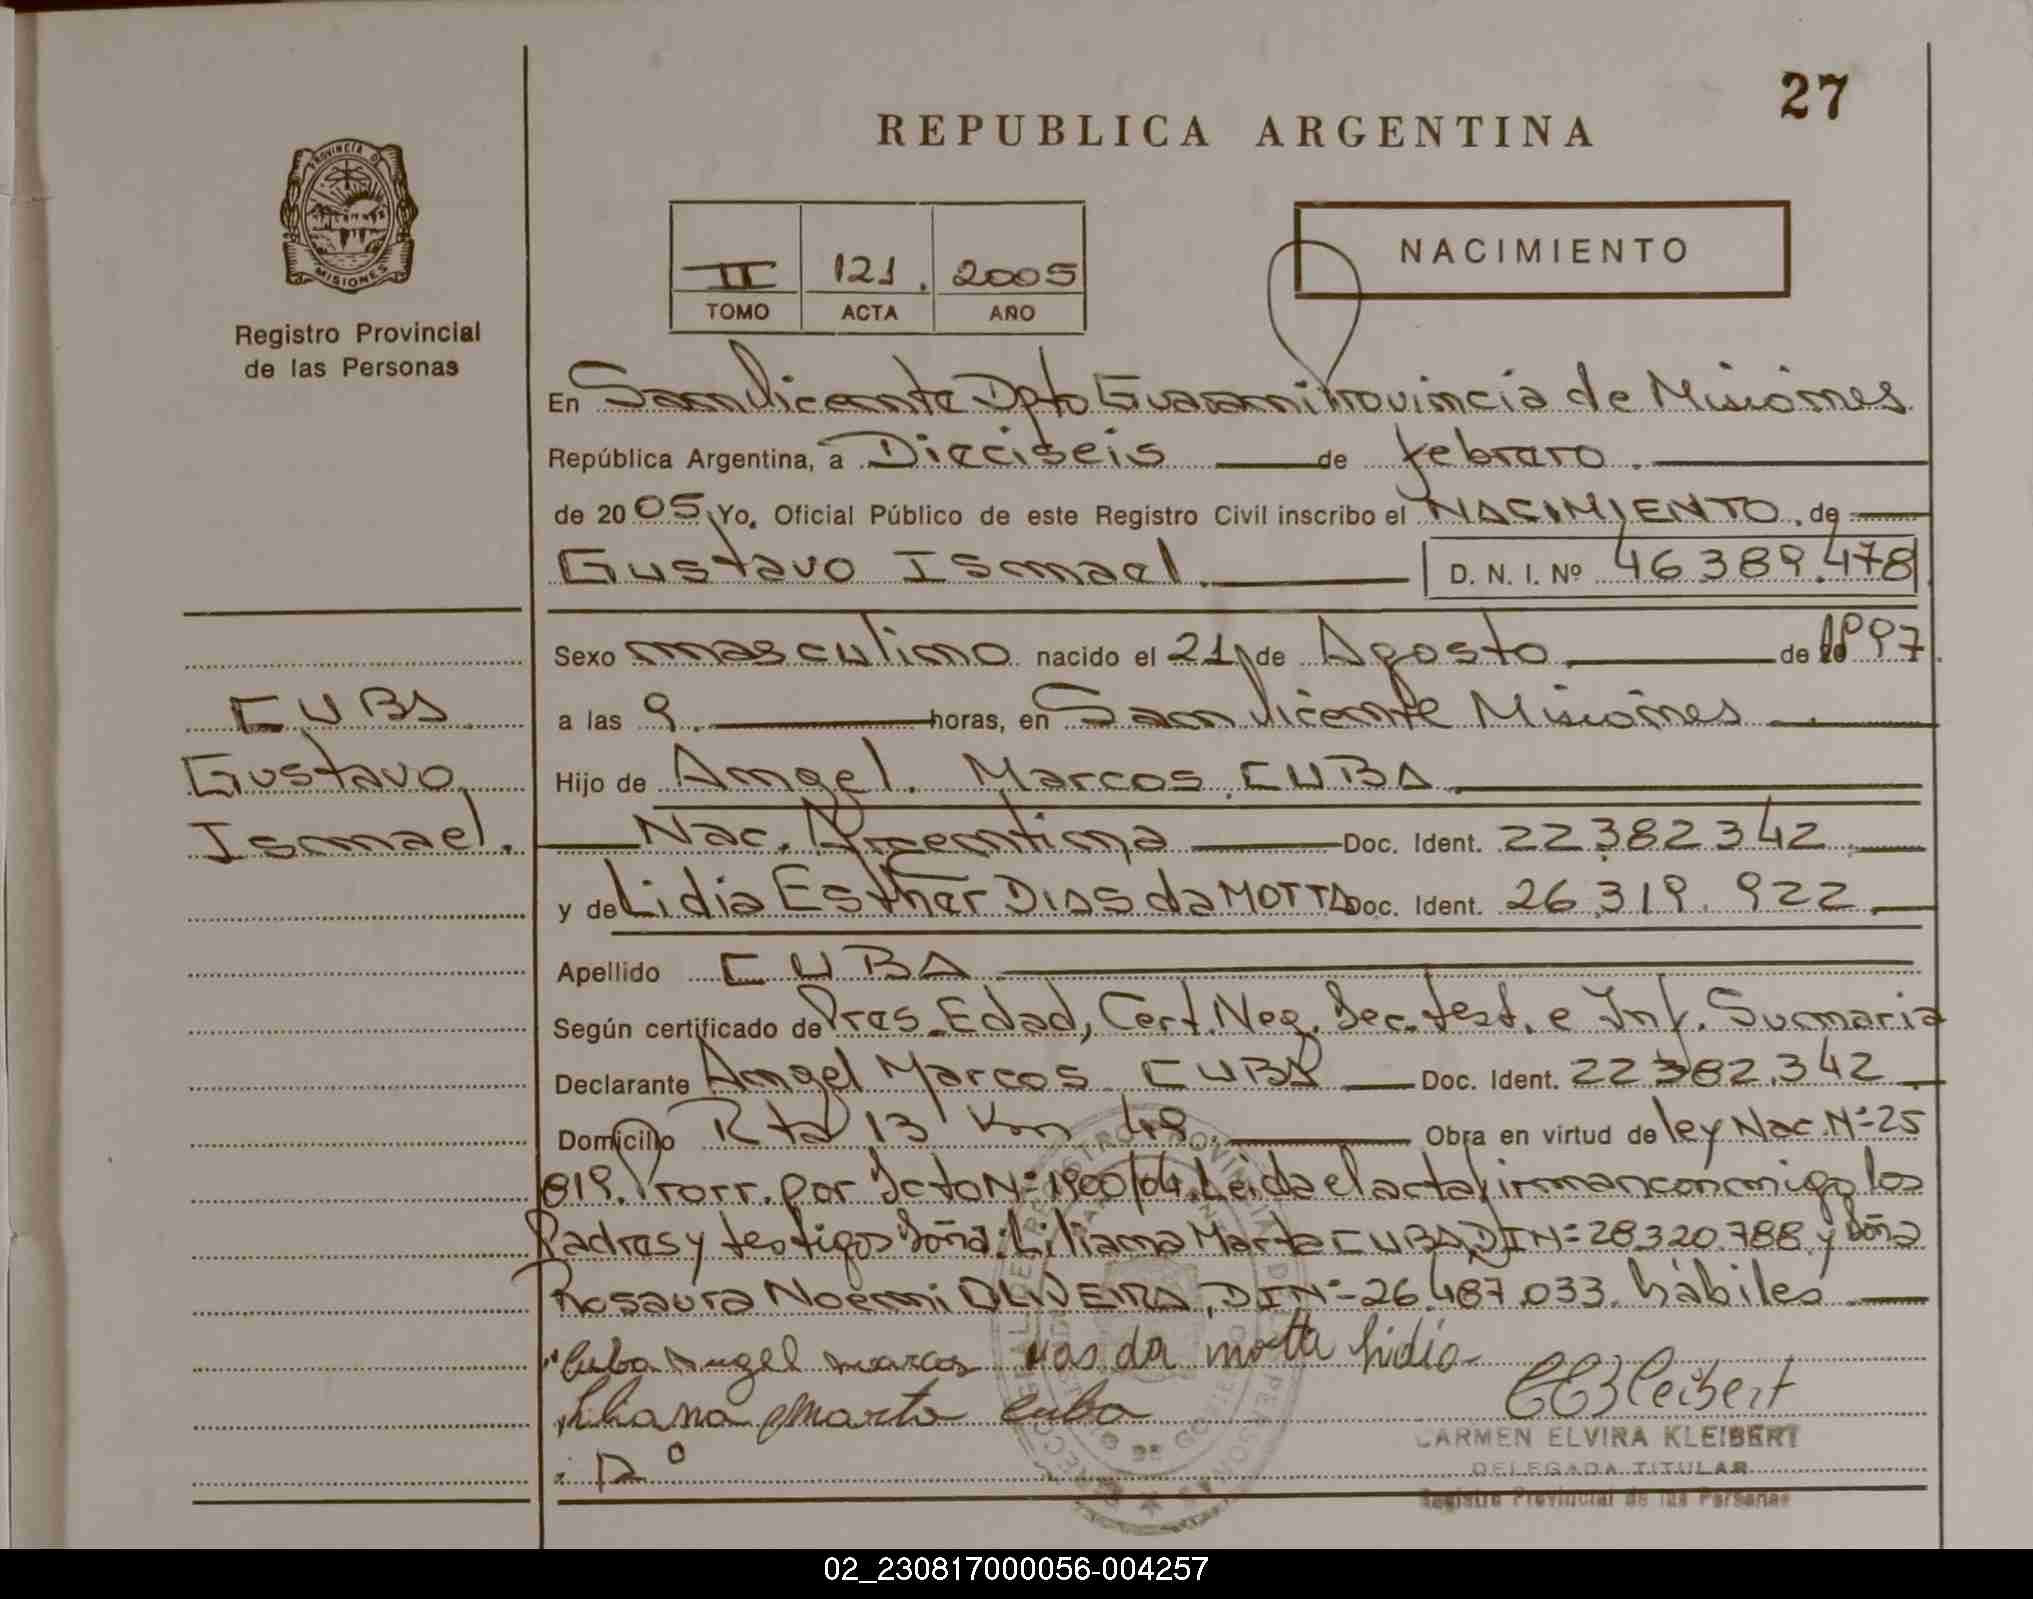 27
REPUBLICA ARGENTINA
PROVINCIA DE
MISIONES
Registro Provincial
de las Personas
II 121. 2005
TOMO ACTA AÑO
NACIMIENTO
En San Vicente Dpto Guarani Provincia de Misiones
República Argentina, a Dieciseis de febrero.
de 2005 Yo, Oficial Público de este Registro Civil inscribo el NACIMIENTO de
Gustavo Ismael. D. N. I. Nº 46.389.478
Sexo masculino nacido el 21 de Agosto de 1997
CUBA a las 9. horas, en San Vicente Misiones
Gustavo Hijo de Angel Marcos CUBA
Ismael. Nac. Argentina Doc. Ident. 22.382.342
y de Lidia Esther DIAS da MOTTA Doc. Ident. 26.319.922
Apellido CUBA
Según certificado de Pres. Edad, Cert. Neg. Dec. test. e Inf. Sumaria
Declarante Angel Marcos CUBA Doc. Ident. 22.382.342
Domicilio Rta 13 Km 48. Obra en virtud de ley Nac. Nº 25
819. Prorr. por Dcto Nº 1900/04. Leida el acta firman conmigo los
Padres y testigos Doña: Liliana Marta CUBA, DI Nº 28.320.788 y Doña
Rosaura Noemi OLIVEIRA, DI Nº 26.487.033. hábiles
Cuba Angel marcos da motta lidia
Liliana Marta cuba
CEKleibert
CARMEN ELVIRA KLEIBERT
DELEGADA TITULAR
Registro Provincial de las Personas
02_230817000056-004257